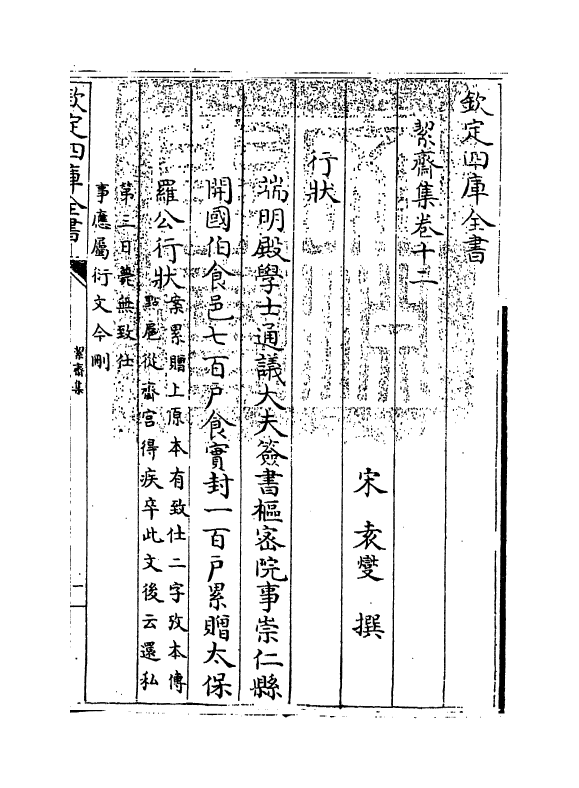 欽定四庫全書
絜齋集卷十二
宋 袁燮 撰
行狀
端明殿學士通議大夫簽書樞密院事崇仁縣
開國伯食邑七百戶食實封一百戶累贈太保
羅公行狀案累贈上原本有致仕二字攷本傳
㸃扈從齋宫得疾卒此文後云還私
第三日薨無致仕
事應屬衍文今刪
欽定四庫全書
絜齋集
一